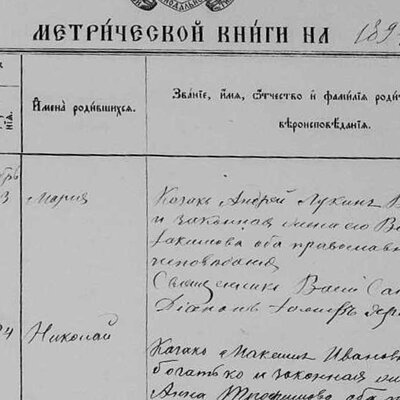 МЕТРИ́ЧЕСКОЙ КНИ́ГИ НА 189
И҆́мена̀ роди́вшихсѧ.
Зва́нїе, и҆́мѧ, ѻ҆́тчество и҆ фами́лїѧ роди
вѣроисповѣ́данїѧ.
3 Марія
Козакъ Андрей Лукинъ
и законная жена его
православн
исповѣданія
Священникъ Васи
Діаконъ
24 Николай
Козакъ Максимъ Иванов
Богатько и законная
Анна Трофимова оба